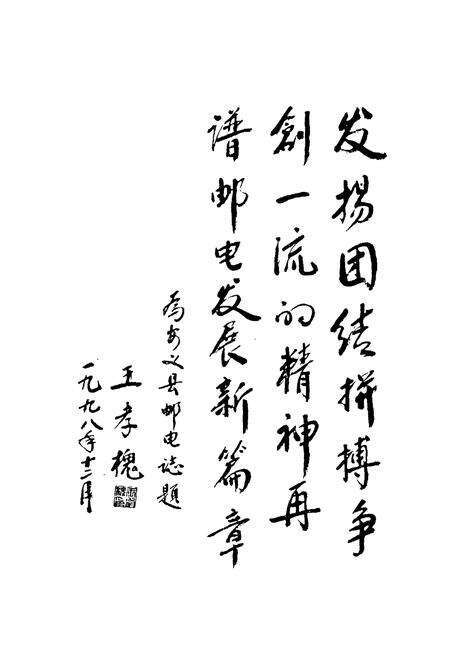 发扬团结拼搏争
創一流的精神再
谱邮电发展新篇章
为安义县邮电志题
王孝槐
一九九八年十二月